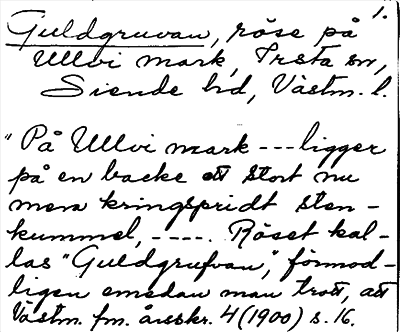 1.
Guldgruvan, röse på
Ullvi mark, Irsta sn,
Siende hd, Västm. l.
"På Ullvi mark ---ligger
på en backe ett stort nu
mera kringspridt sten-
kummel, ----. Röset kal-
las "Guldgrufvan", förmod-
ligen emedan man trott, att
Västm. fm. årsskr. 4 (1900) s. 16.